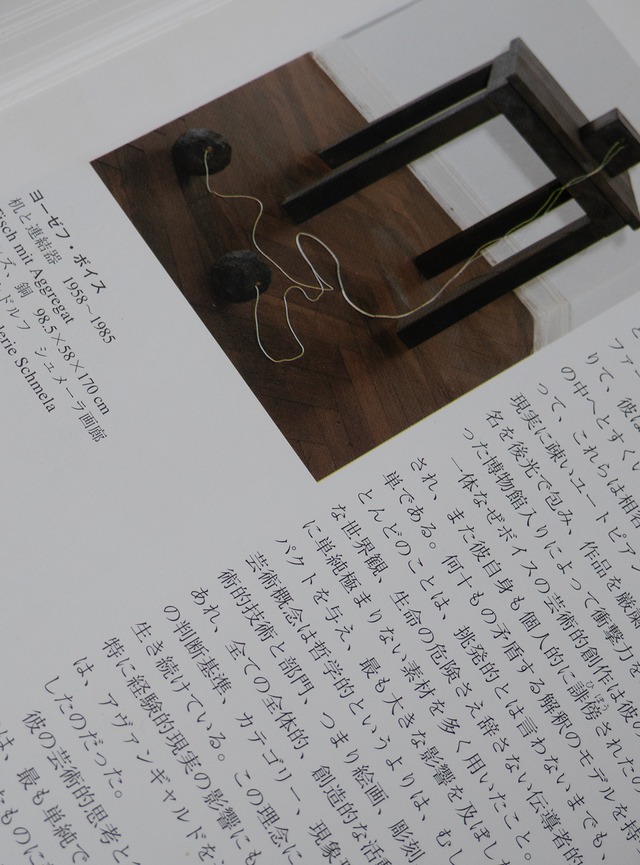 ヨーゼフ・ボイス
机と連結器　1958～1985
isch mit Aggregat
ズ、銅　98.5×58×170 cm
ルドルフ　シュメーラ画廊
lerie Schmela
ファー
りて、彼は
の中へとすくい
って、これらは相
現実に疎いユートピアン
名を後光で包み、作品を厳粛
った博物館入りによって衝撃力
一体なぜボイスの芸術的創作は彼の
され、また彼自身も個人的に誹謗された
単である。何十もの矛盾する解釈のモデルを持
とんどのことは、挑発的とは言わないまでも、
な世界観、生命の危険さえ辞さない伝導者的
に単純極まりない素材を多く用いたこと。
パクトを与え、最も大きな影響を及ぼした
芸術概念は哲学的というよりは、むし
術的技術と部門、つまり絵画、彫刻
あれ、全ての全体的、創造的な活動
の判断基準、カテゴリー、現象
生き続けている。この理念に
特に経験的現実の影響にも
は、アヴァンギャルドを
したのだった。
彼の芸術的思考と
は、最も単純で
たものに